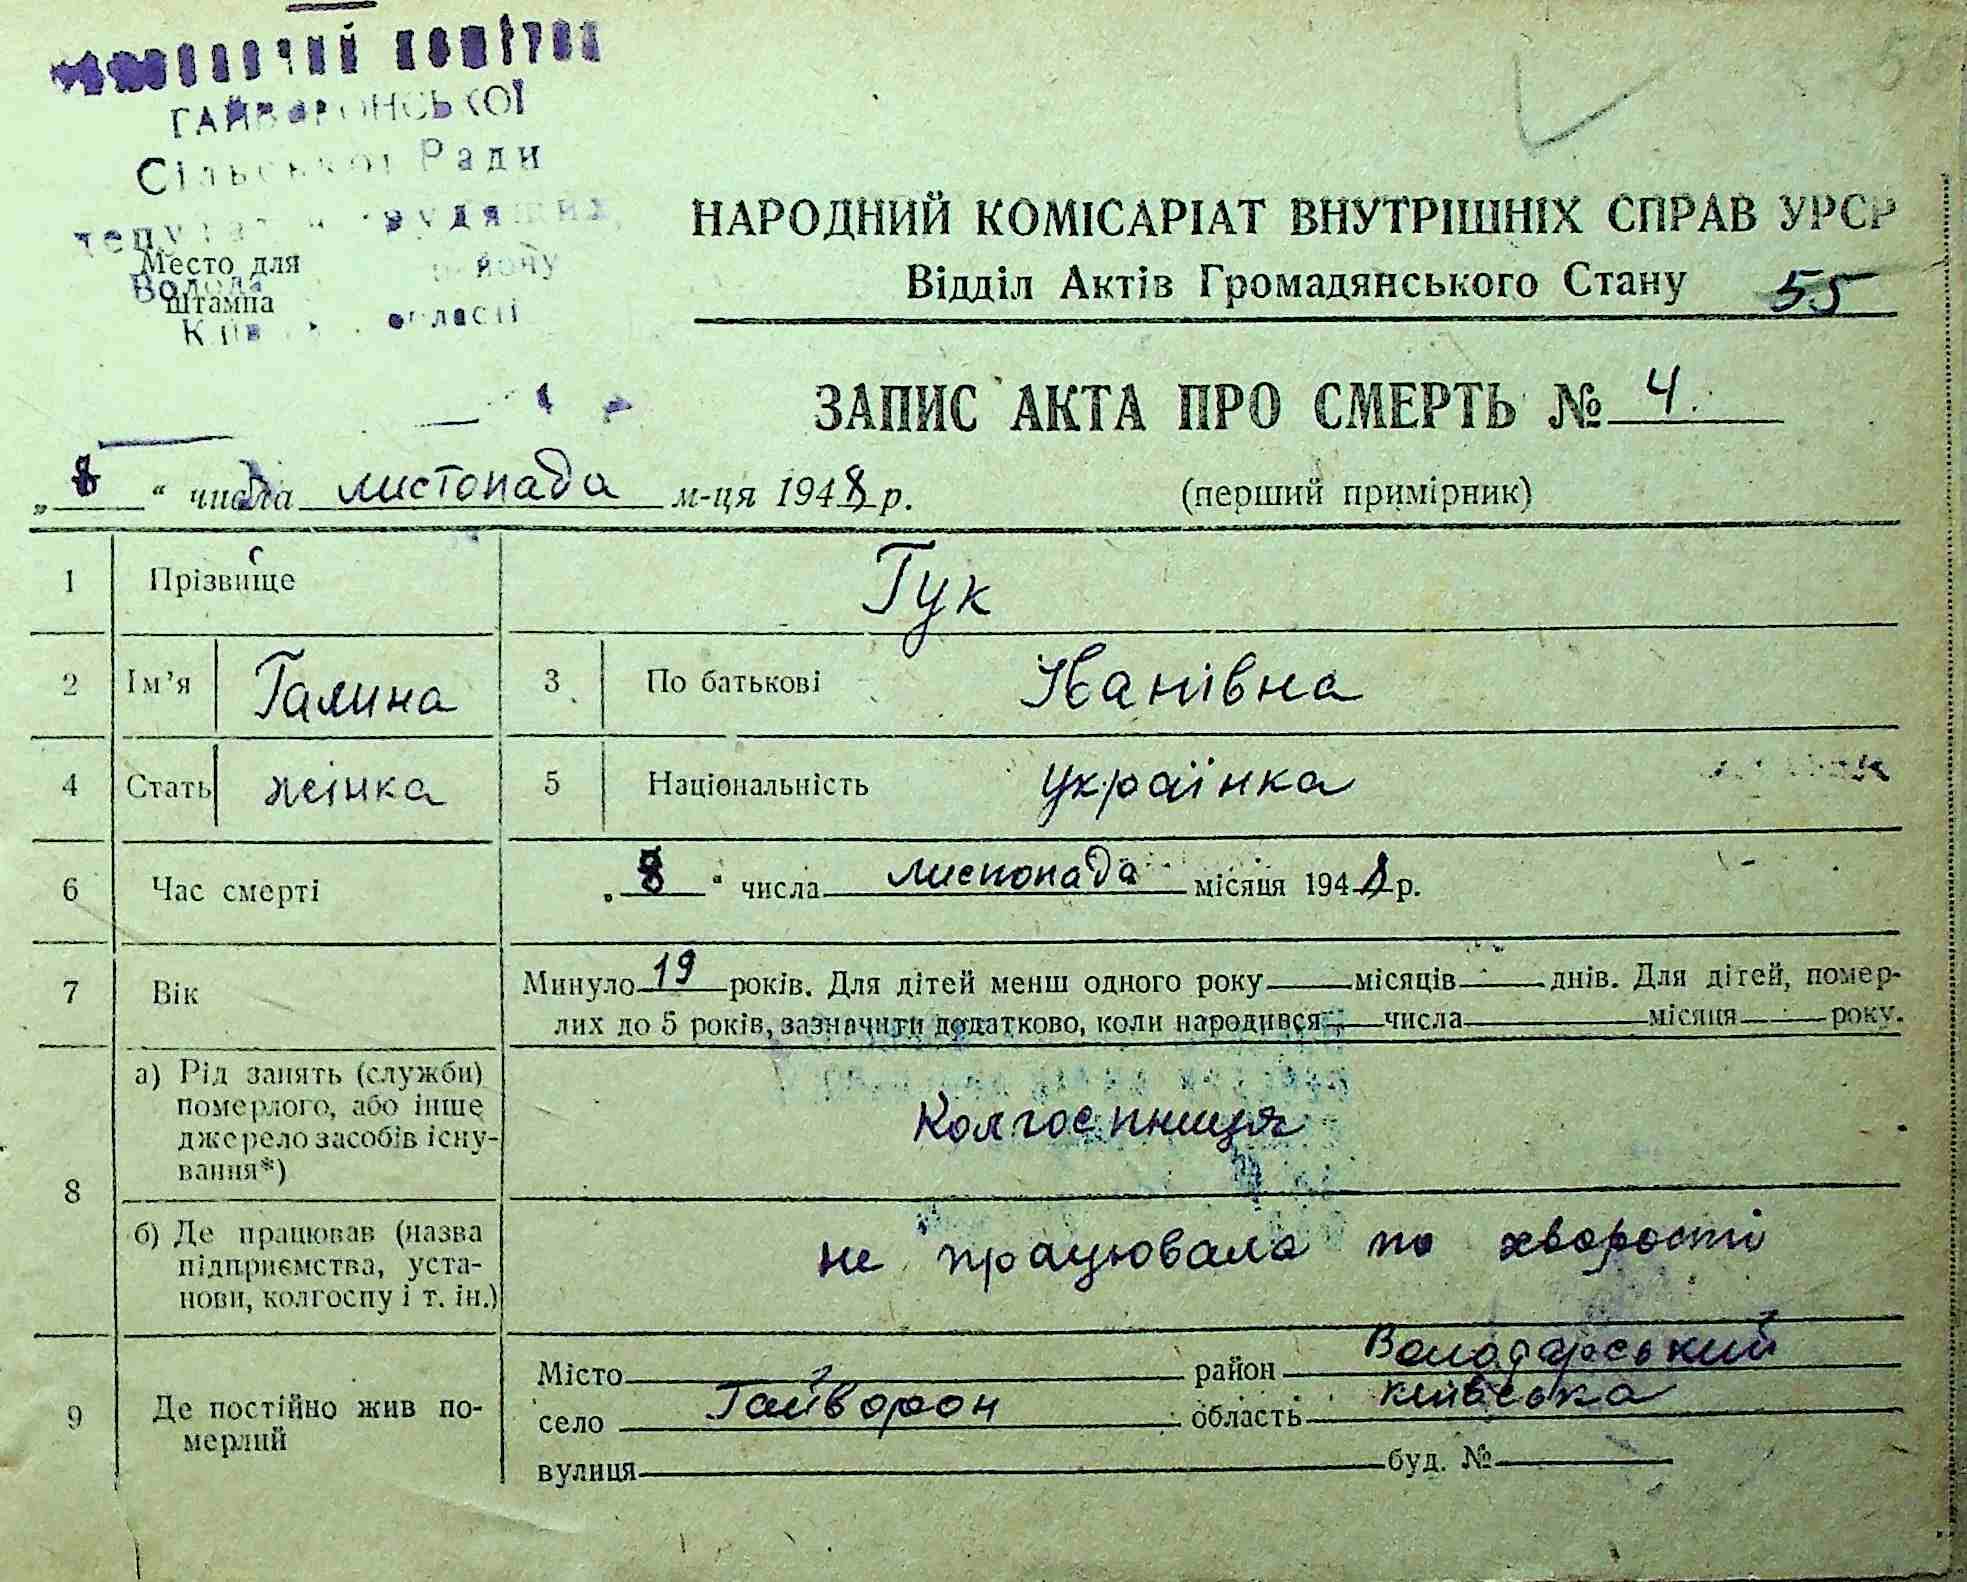 ГАЙВОРОНСЬКОЇ
Сільської Ради
Место для
штампа
області
НАРОДНИЙ КОМІСАРІАТ ВНУТРІШНІХ СПРАВ УРСР
Відділ Актів Громадянського Стану 55
ЗАПИС АКТА ПРО СМЕРТЬ № 4.
„8“ числа листопада м-ця 1948 р. (перший примірник)
1 Прізвище Гук
2 Ім'я Галина 3 По батькові Іванівна
4 Стать жінка 5 Національність українка
6 Час смерті „8“ числа листопада місяця 1948 р.
7 Вік Минуло 19 років. Для дітей менш одного року місяців днів. Для дітей, помер-
лих до 5 років, зазначити додатково, коли народився числа місяця року.
8 а) Рід занять (служби)
померлого, або інше
джерело засобів існу-
вання*)
Колгоспниця
б) Де працював (назва
підприємства, уста-
нови, колгоспу і т. ін.)
не працювала по хворості
9 Де постійно жив по-
мерлий
Місто район Володарський
село Гайворон область київська
вулиця буд. №